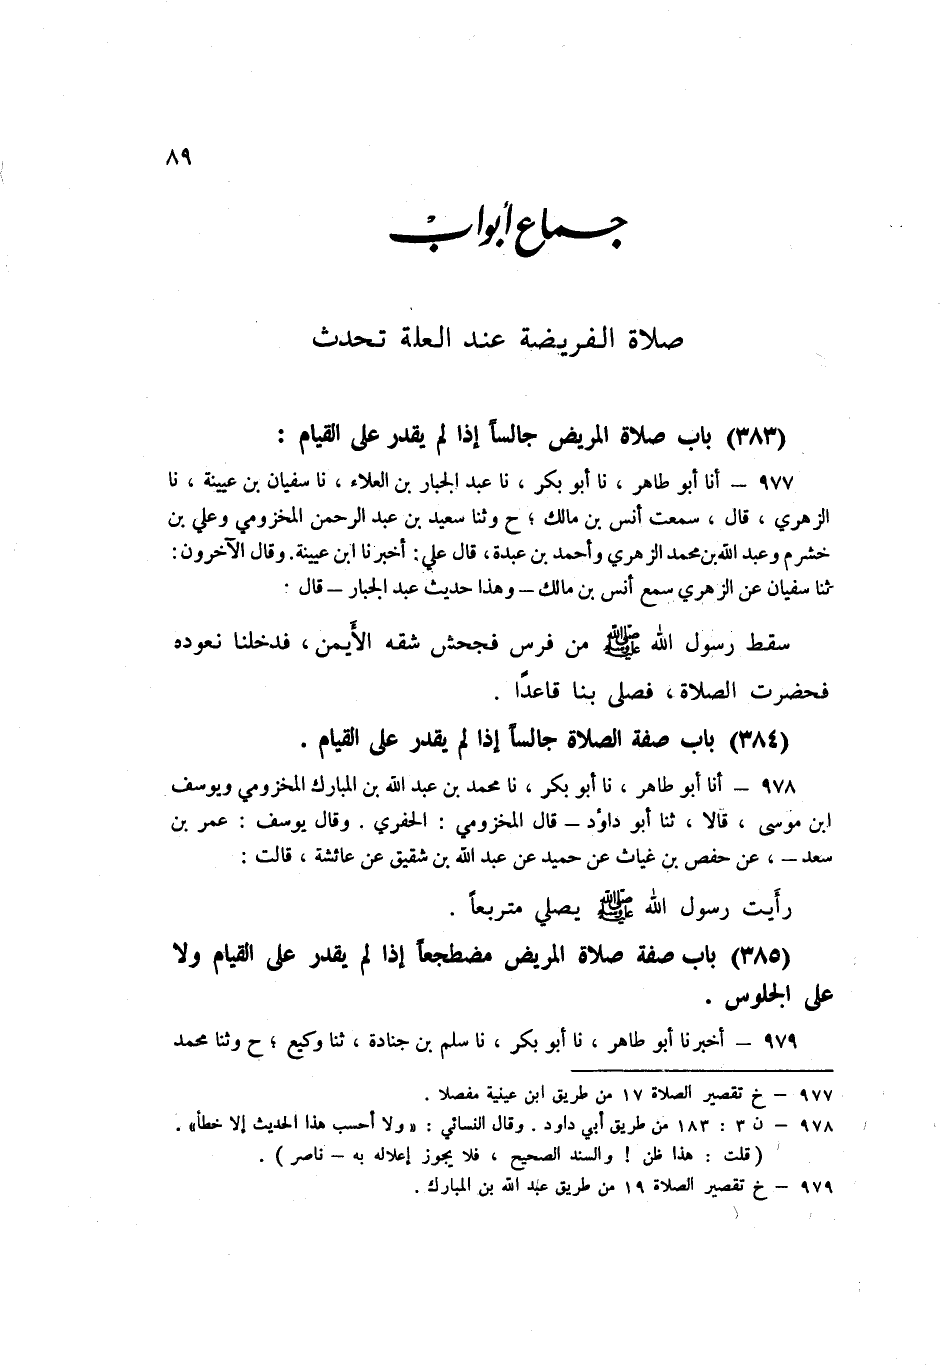 ٨٩
جماع أبواب
صلاة الفريضة عند العلة تحدث
(٣٨٣) باب صلاة المريض جالساً إذا لم يقدر على القيام :
٩٧٧ — أنا أبو طاهر ، نا أبو بكر ، نا عبد الجبار بن العلاء ، نا سفيان بن عيينة ، نا
الزهري ، قال ، سمعت أنس بن مالك ؛ ح وثنا سعيد بن عبد الرحمن المخزومي وعلي بن
خشرم وعبد الله بن محمد الزهري وأحمد بن عبدة، قال علي: أخبرنا ابن عيينة. وقال الآخرون:
ثنا سفيان عن الزهري سمع أنس بن مالك — وهذا حديث عبد الجبار — قال :
سقط رسول الله ﷺ من فرس فجحش شقه الأيمن، فدخلنا نعوده
فحضرت الصلاة، فصلى بنا قاعدًا .
(٣٨٤) باب صفة الصلاة جالساً إذا لم يقدر على القيام .
٩٧٨ — أنا أبو طاهر ، نا أبو بكر ، نا محمد بن عبد الله بن المبارك المخزومي ويوسف
ابن موسى ، قالا ، ثنا أبو داوُد — قال المخزومي : الحفري . وقال يوسف : عمر بن
سعد — ، عن حفص بن غياث عن حميد عن عبد الله بن شقيق عن عائشة ، قالت :
رأَيت رسول الله ﷺ يصلي متربعاً .
(٣٨٥) باب صفة صلاة المريض مضطجعاً إذا لم يقدر على القيام ولا
على الجلوس .
٩٧٩ — أخبرنا أبو طاهر ، نا أبو بكر ، نا سلم بن جنادة ، ثنا وكيع ؛ ح وثنا محمد
٩٧٧ — خ تقصير الصلاة ١٧ من طريق ابن عينية مفصلا .
٩٧٨ — ن ٣ : ١٨٣ من طريق أبي داود . وقال النسائي : «ولا أحسب هذا الحديث إلا خطأ» .
( قلت : هذا ظن ! والسند الصحيح ، فلا يجوز إعلاله به — ناصر ) .
٩٧٩ — خ تقصير الصلاة ١٩ من طريق عبد الله بن المبارك .